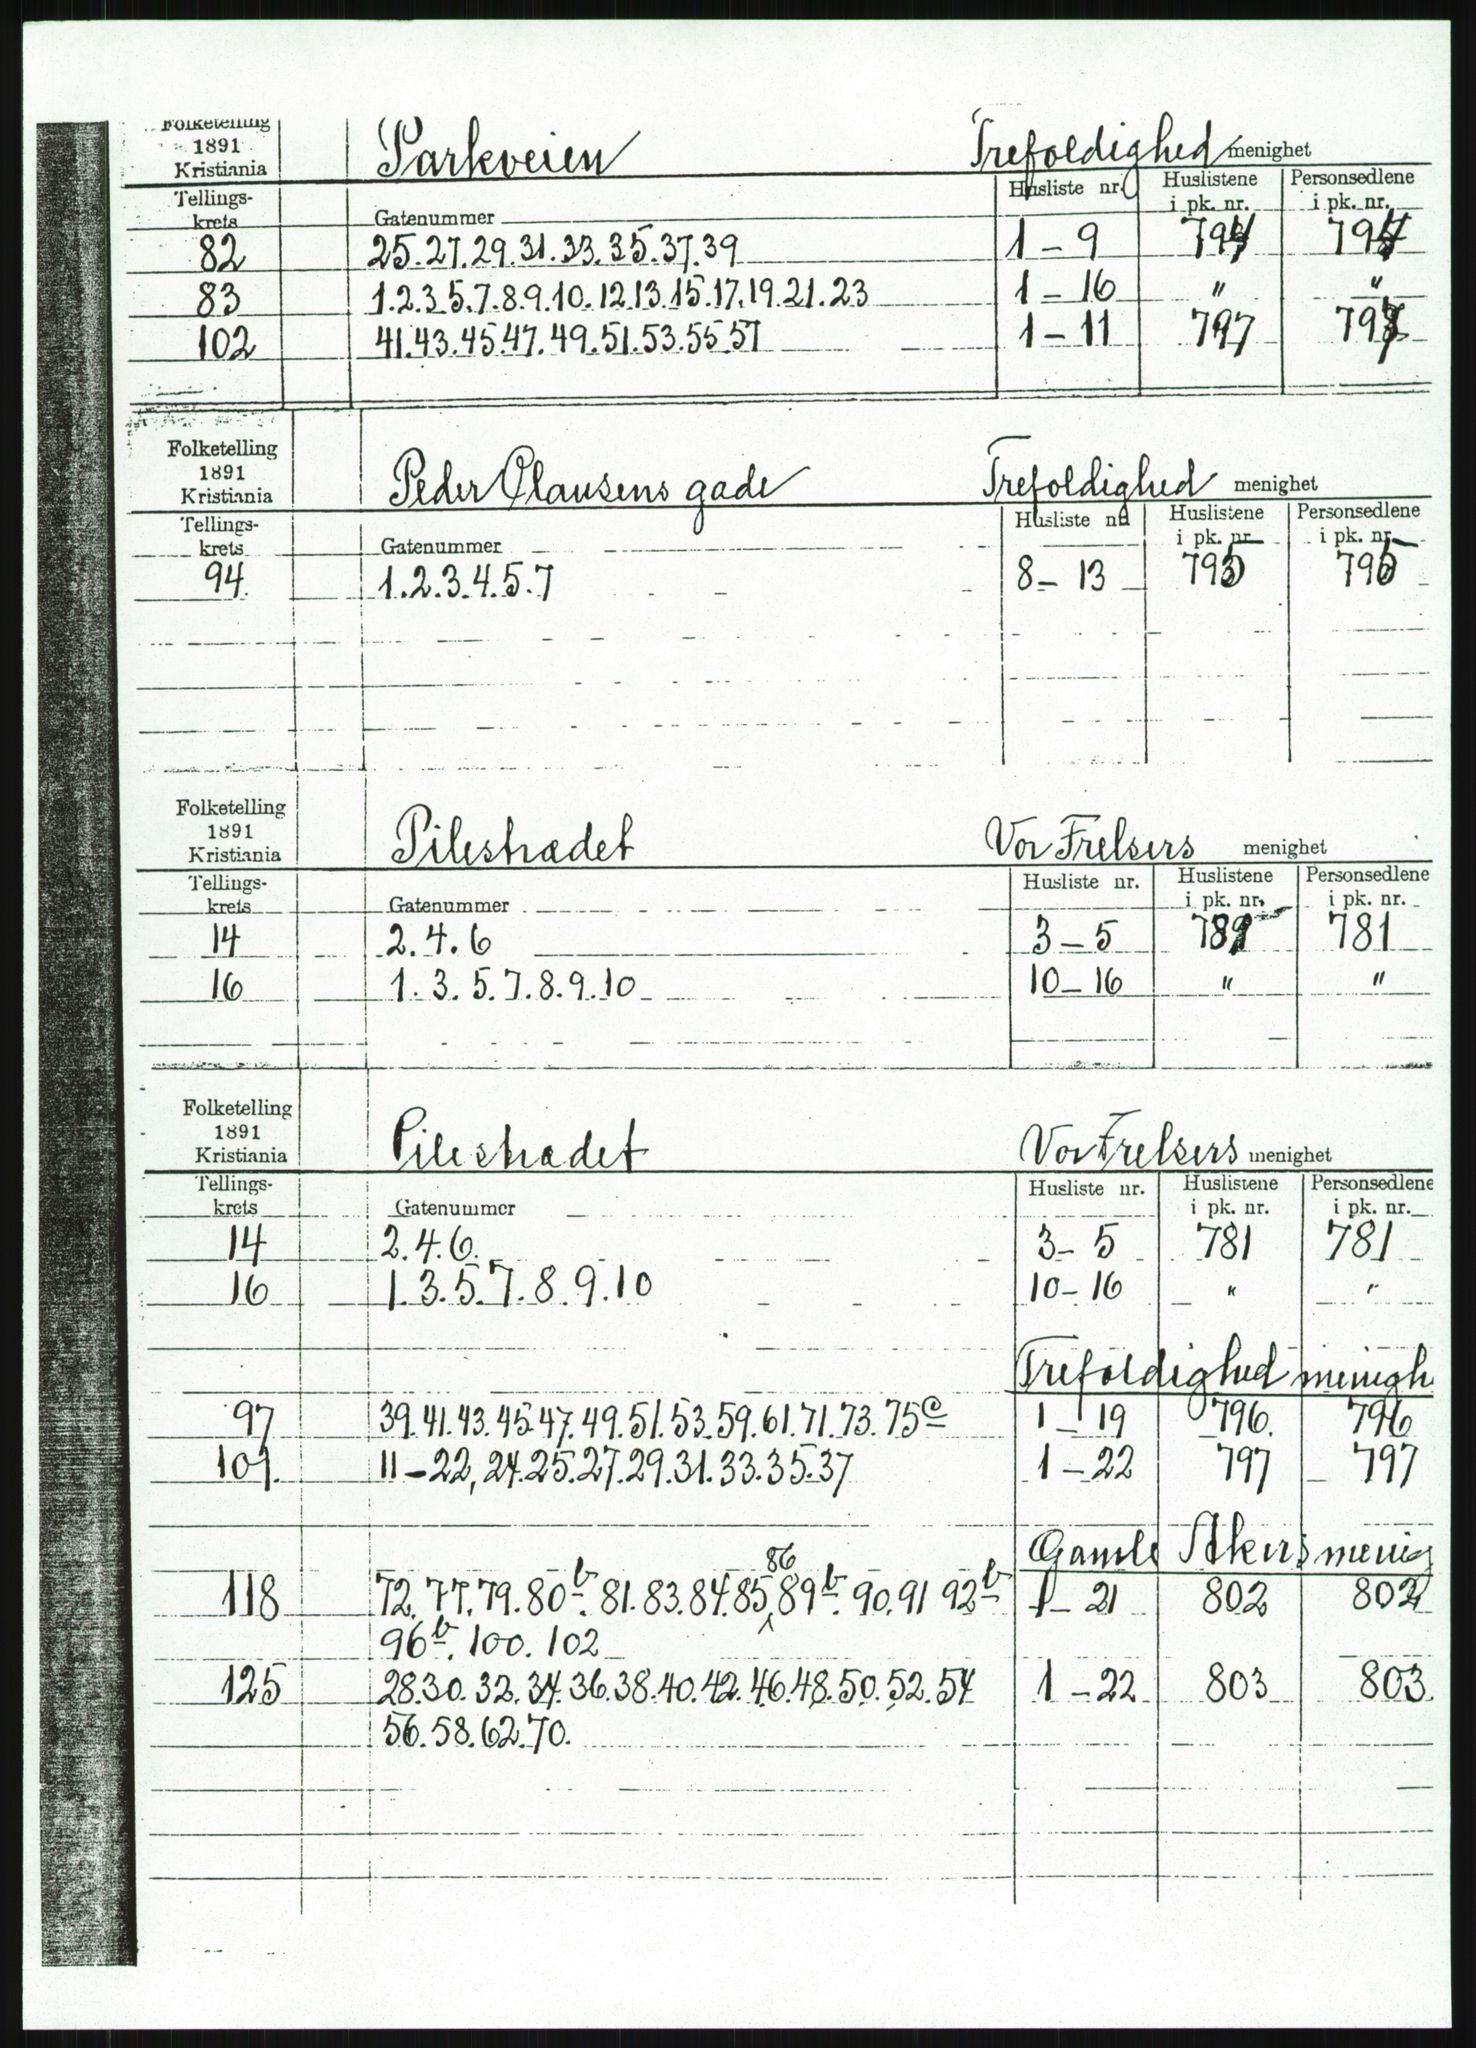 Folketelling
1891
Kristiania
Parkveien
Trefoldighed menighet
Tellings-
krets
Gatenummer
Husliste nr.
Huslistene
i pk. nr.
Personsedlene
i pk. nr.
82 25. 27. 29. 31. 33. 35. 37. 39 1 - 9 794 794
83 1. 2. 3. 5. 7. 8. 9. 10. 12. 13. 15. 17. 19. 21. 23 1 - 16 " "
102 41. 43. 45. 47. 49. 51. 53. 55. 57 1 - 11 797 797
Folketelling
1891
Kristiania
Peder Clausens gade
Trefoldighed menighet
Tellings-
krets
Gatenummer
Husliste nr.
Huslistene
i pk. nr.
Personsedlene
i pk. nr.
94 1. 2. 3. 4. 5. 7 8 - 13 795 795
Folketelling
1891
Kristiania
Pilestrædet
Vor Frelsers menighet
Tellings-
krets
Gatenummer
Husliste nr.
Huslistene
i pk. nr.
Personsedlene
i pk. nr.
14 2. 4. 6 3 - 5 781 781
16 1. 3. 5. 7. 8. 9. 10 10 - 16 " "
Folketelling
1891
Kristiania
Pilestrædet
Vor Frelsers menighet
Tellings-
krets
Gatenummer
Husliste nr.
Huslistene
i pk. nr.
Personsedlene
i pk. nr.
14 2. 4. 6. 3 - 5 781 781
16 1. 3. 5. 7. 8. 9. 10 10 - 16 " "
Trefoldighed menigh
97 39. 41. 43. 45. 47. 49. 51. 53. 59. 61. 71. 73. 75c 1 - 19 796. 796
101. 11 - 22, 24. 25. 27. 29. 31. 33. 35. 37 1 - 22 797 797
Gamle Akers menig
86
118 72. 77. 79. 80b. 81. 83. 84. 85. 89b. 90. 91 92b 1 - 21 802 802
96b. 100. 102
125 28. 30. 32. 34. 36. 38. 40. 42. 46. 48. 50. 52. 54 1 - 22 803 803
56. 58. 62. 70.